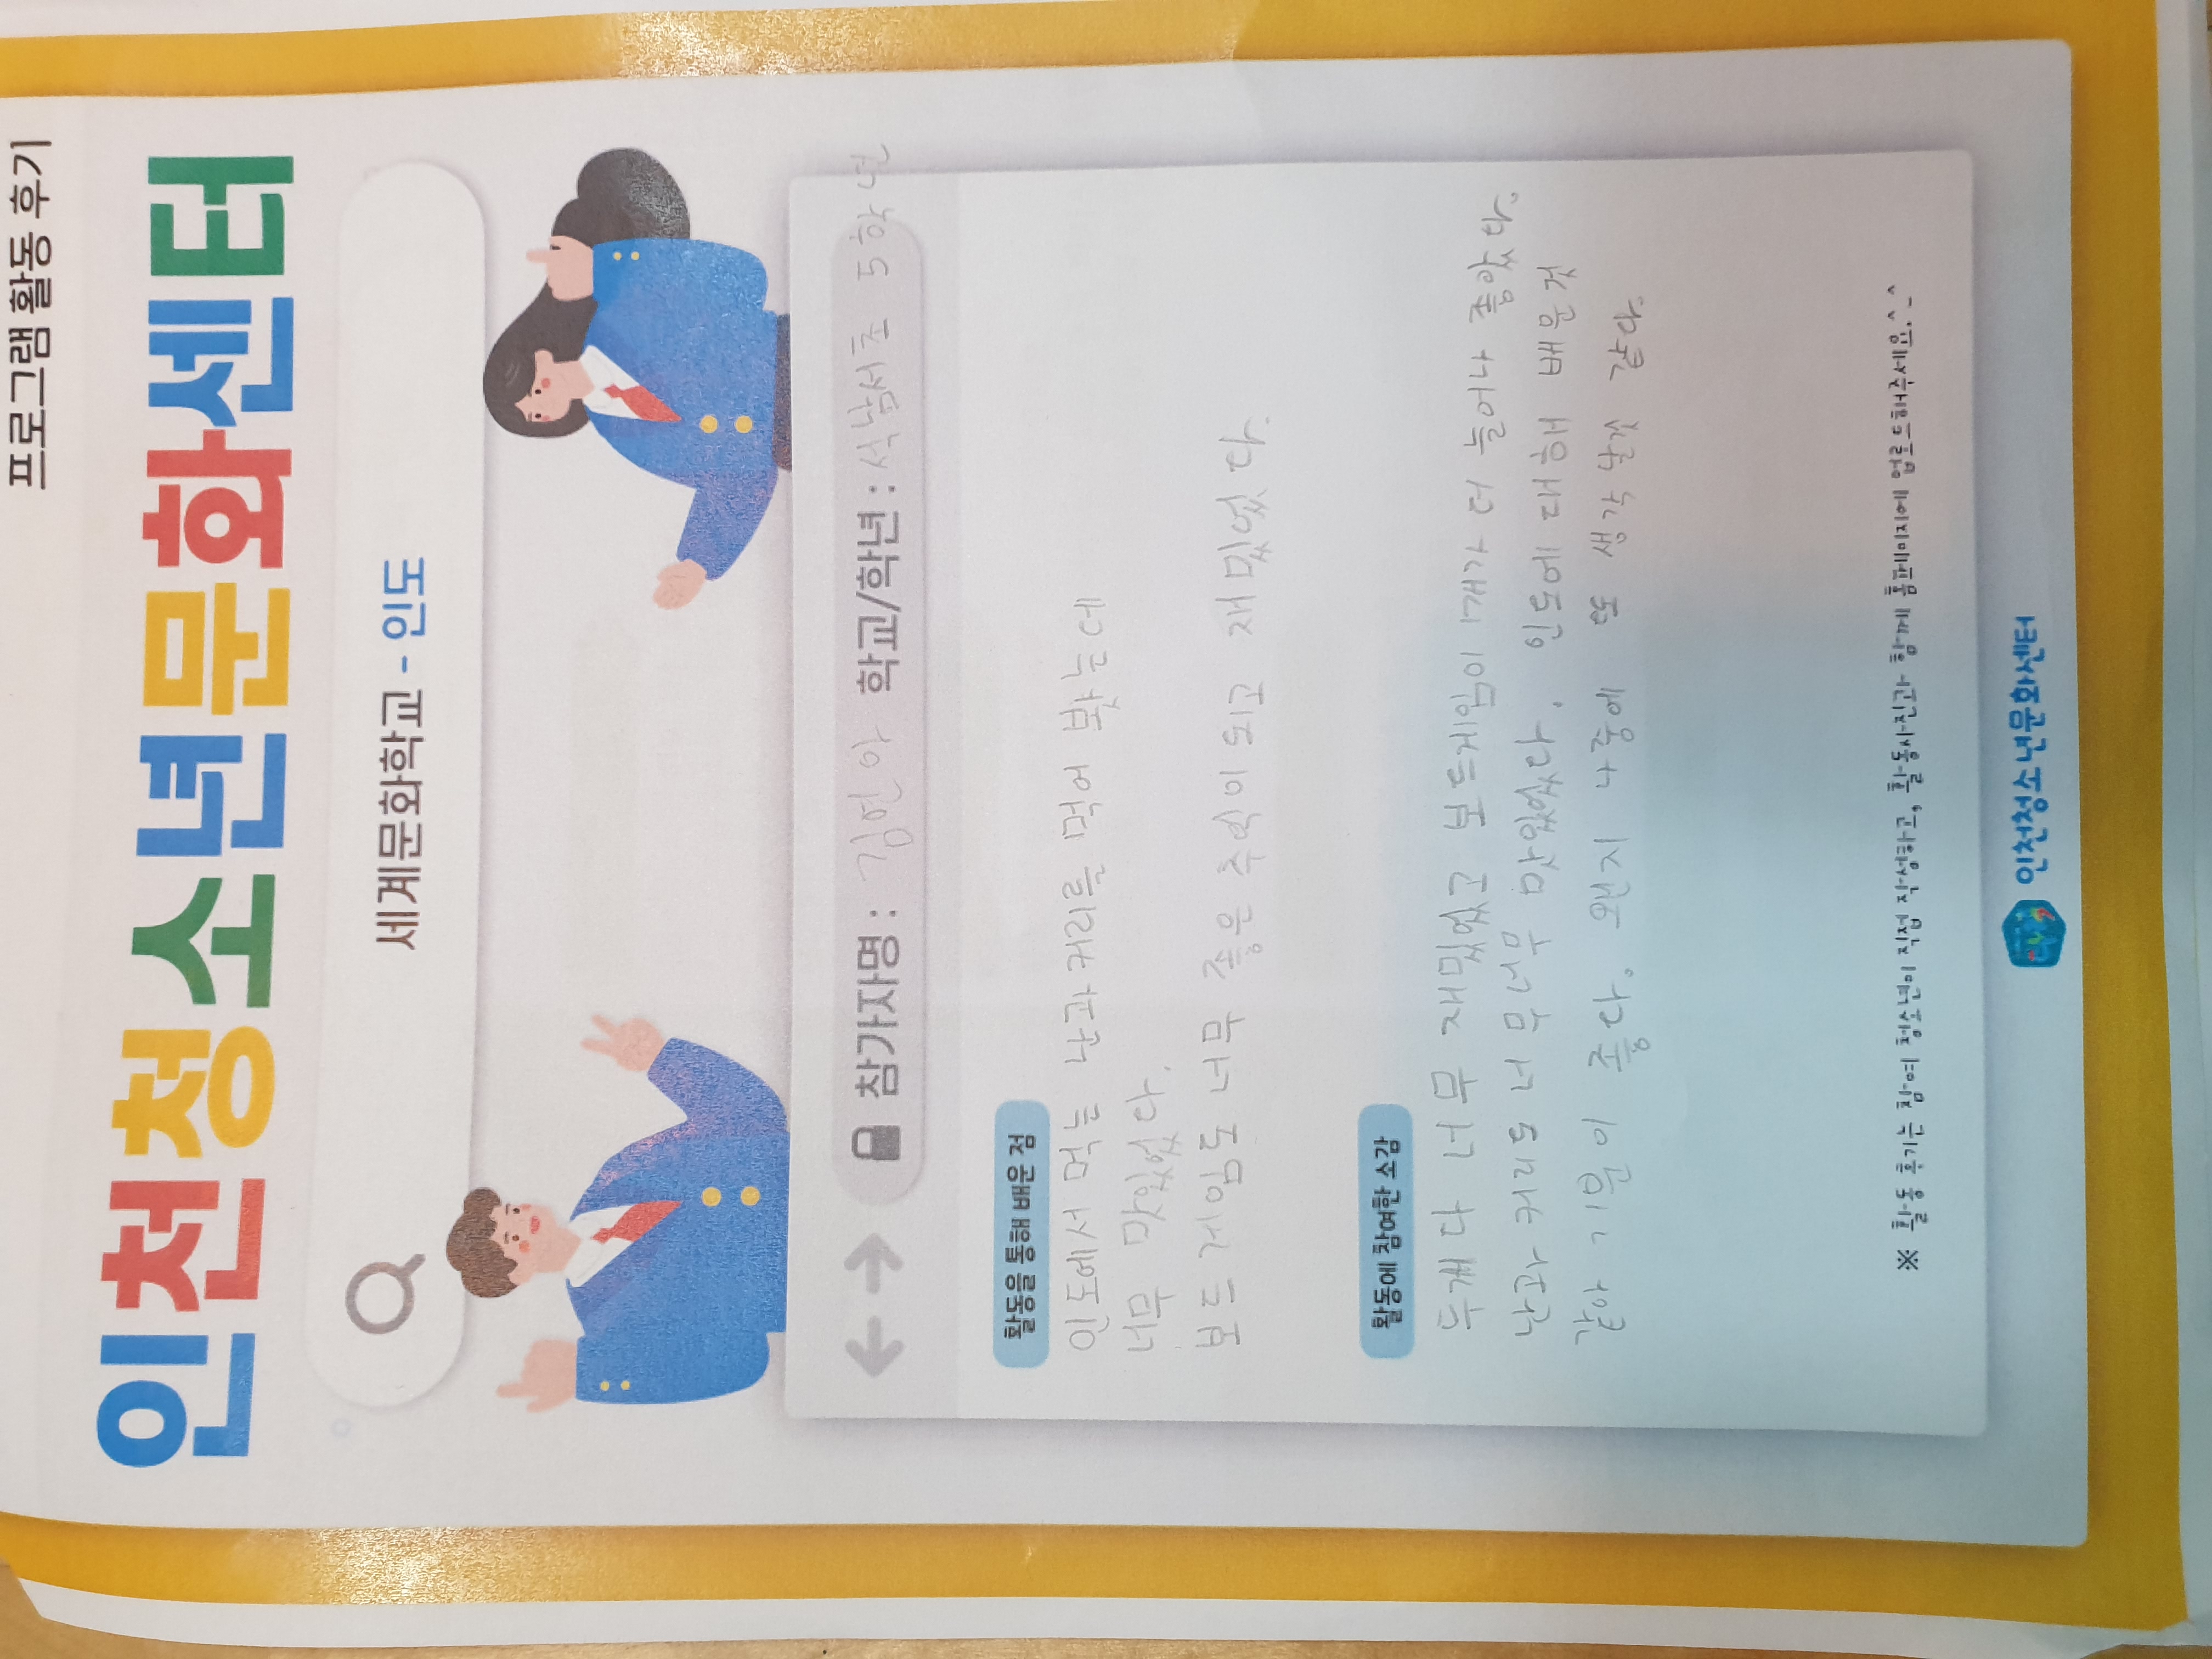 프로그램 활동 후기
인천청소년문화센터
세계문화학교 - 인도
참가자명 : 김연아 학교/학년 : 석남서초 5학년
활동을 통해 배운 점
인도에서 먹는 난과 커리를 먹어 봤는데
너무 맛있었다.
보드게임도 너무 좋은 추억이 되고 재밌었다.
활동에 참여한 소감
두개 다 너무 재밌었고 보드게임이 1개가 더 늘어나 좋았다.
난과 커리도 너무너무 맛있었다. 인도에 대해 배운 것
같아 기분이 좋다. 왠지 나중에 또 생각날것 같다.
※ 활동 후기는 참여 청소년이 직접 작성하고, 활동사진과 함께 홈페이지에 업로드해주세요.^_^
인천청소년문화센터